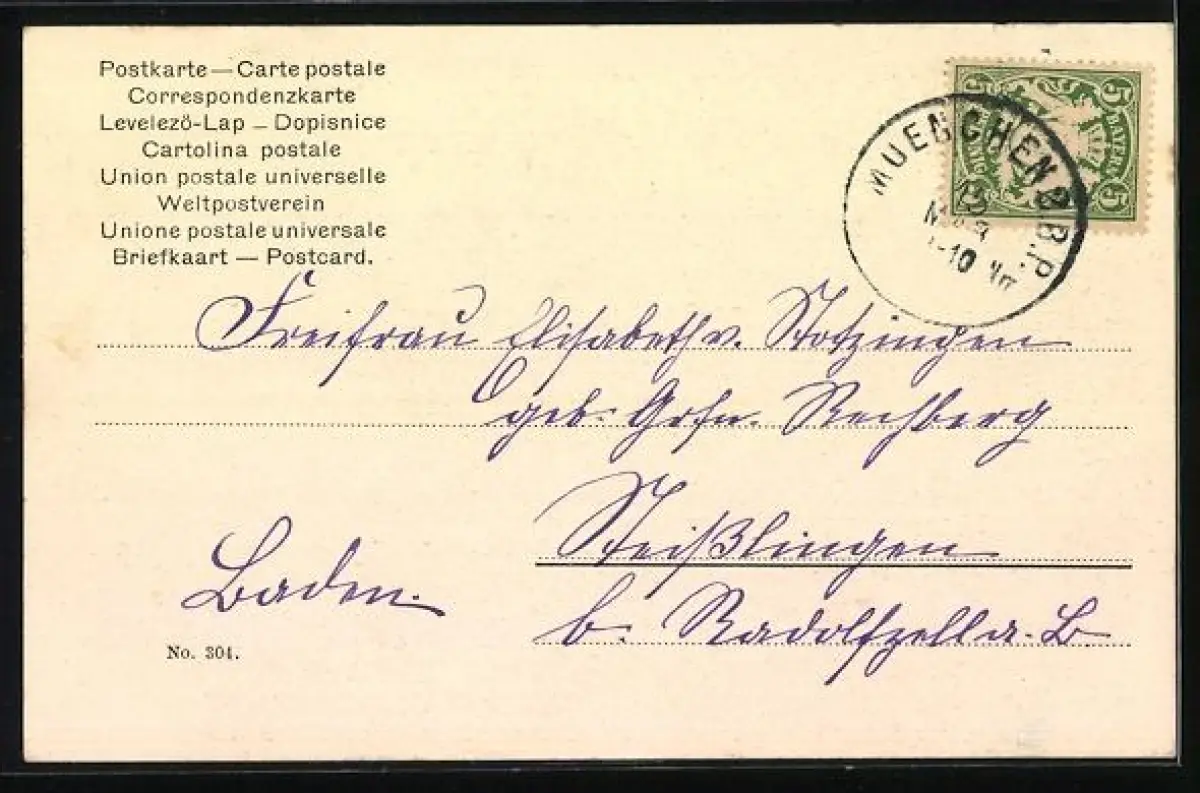 Postkarte — Carte postale
Correspondenzkarte
Levelezö-Lap – Dopisnice
Cartolina postale
Union postale universelle
Weltpostverein
Unione postale universale
Briefkaart — Postcard.
5 5
BAYERN
5
MUENCHEN 2. B.P.
Freifrau Elisabeth v. Stotzingen
geb. Grfn. Rechberg
Steißlingen
Baden.
b. Radolfzell a. B.
No. 304.